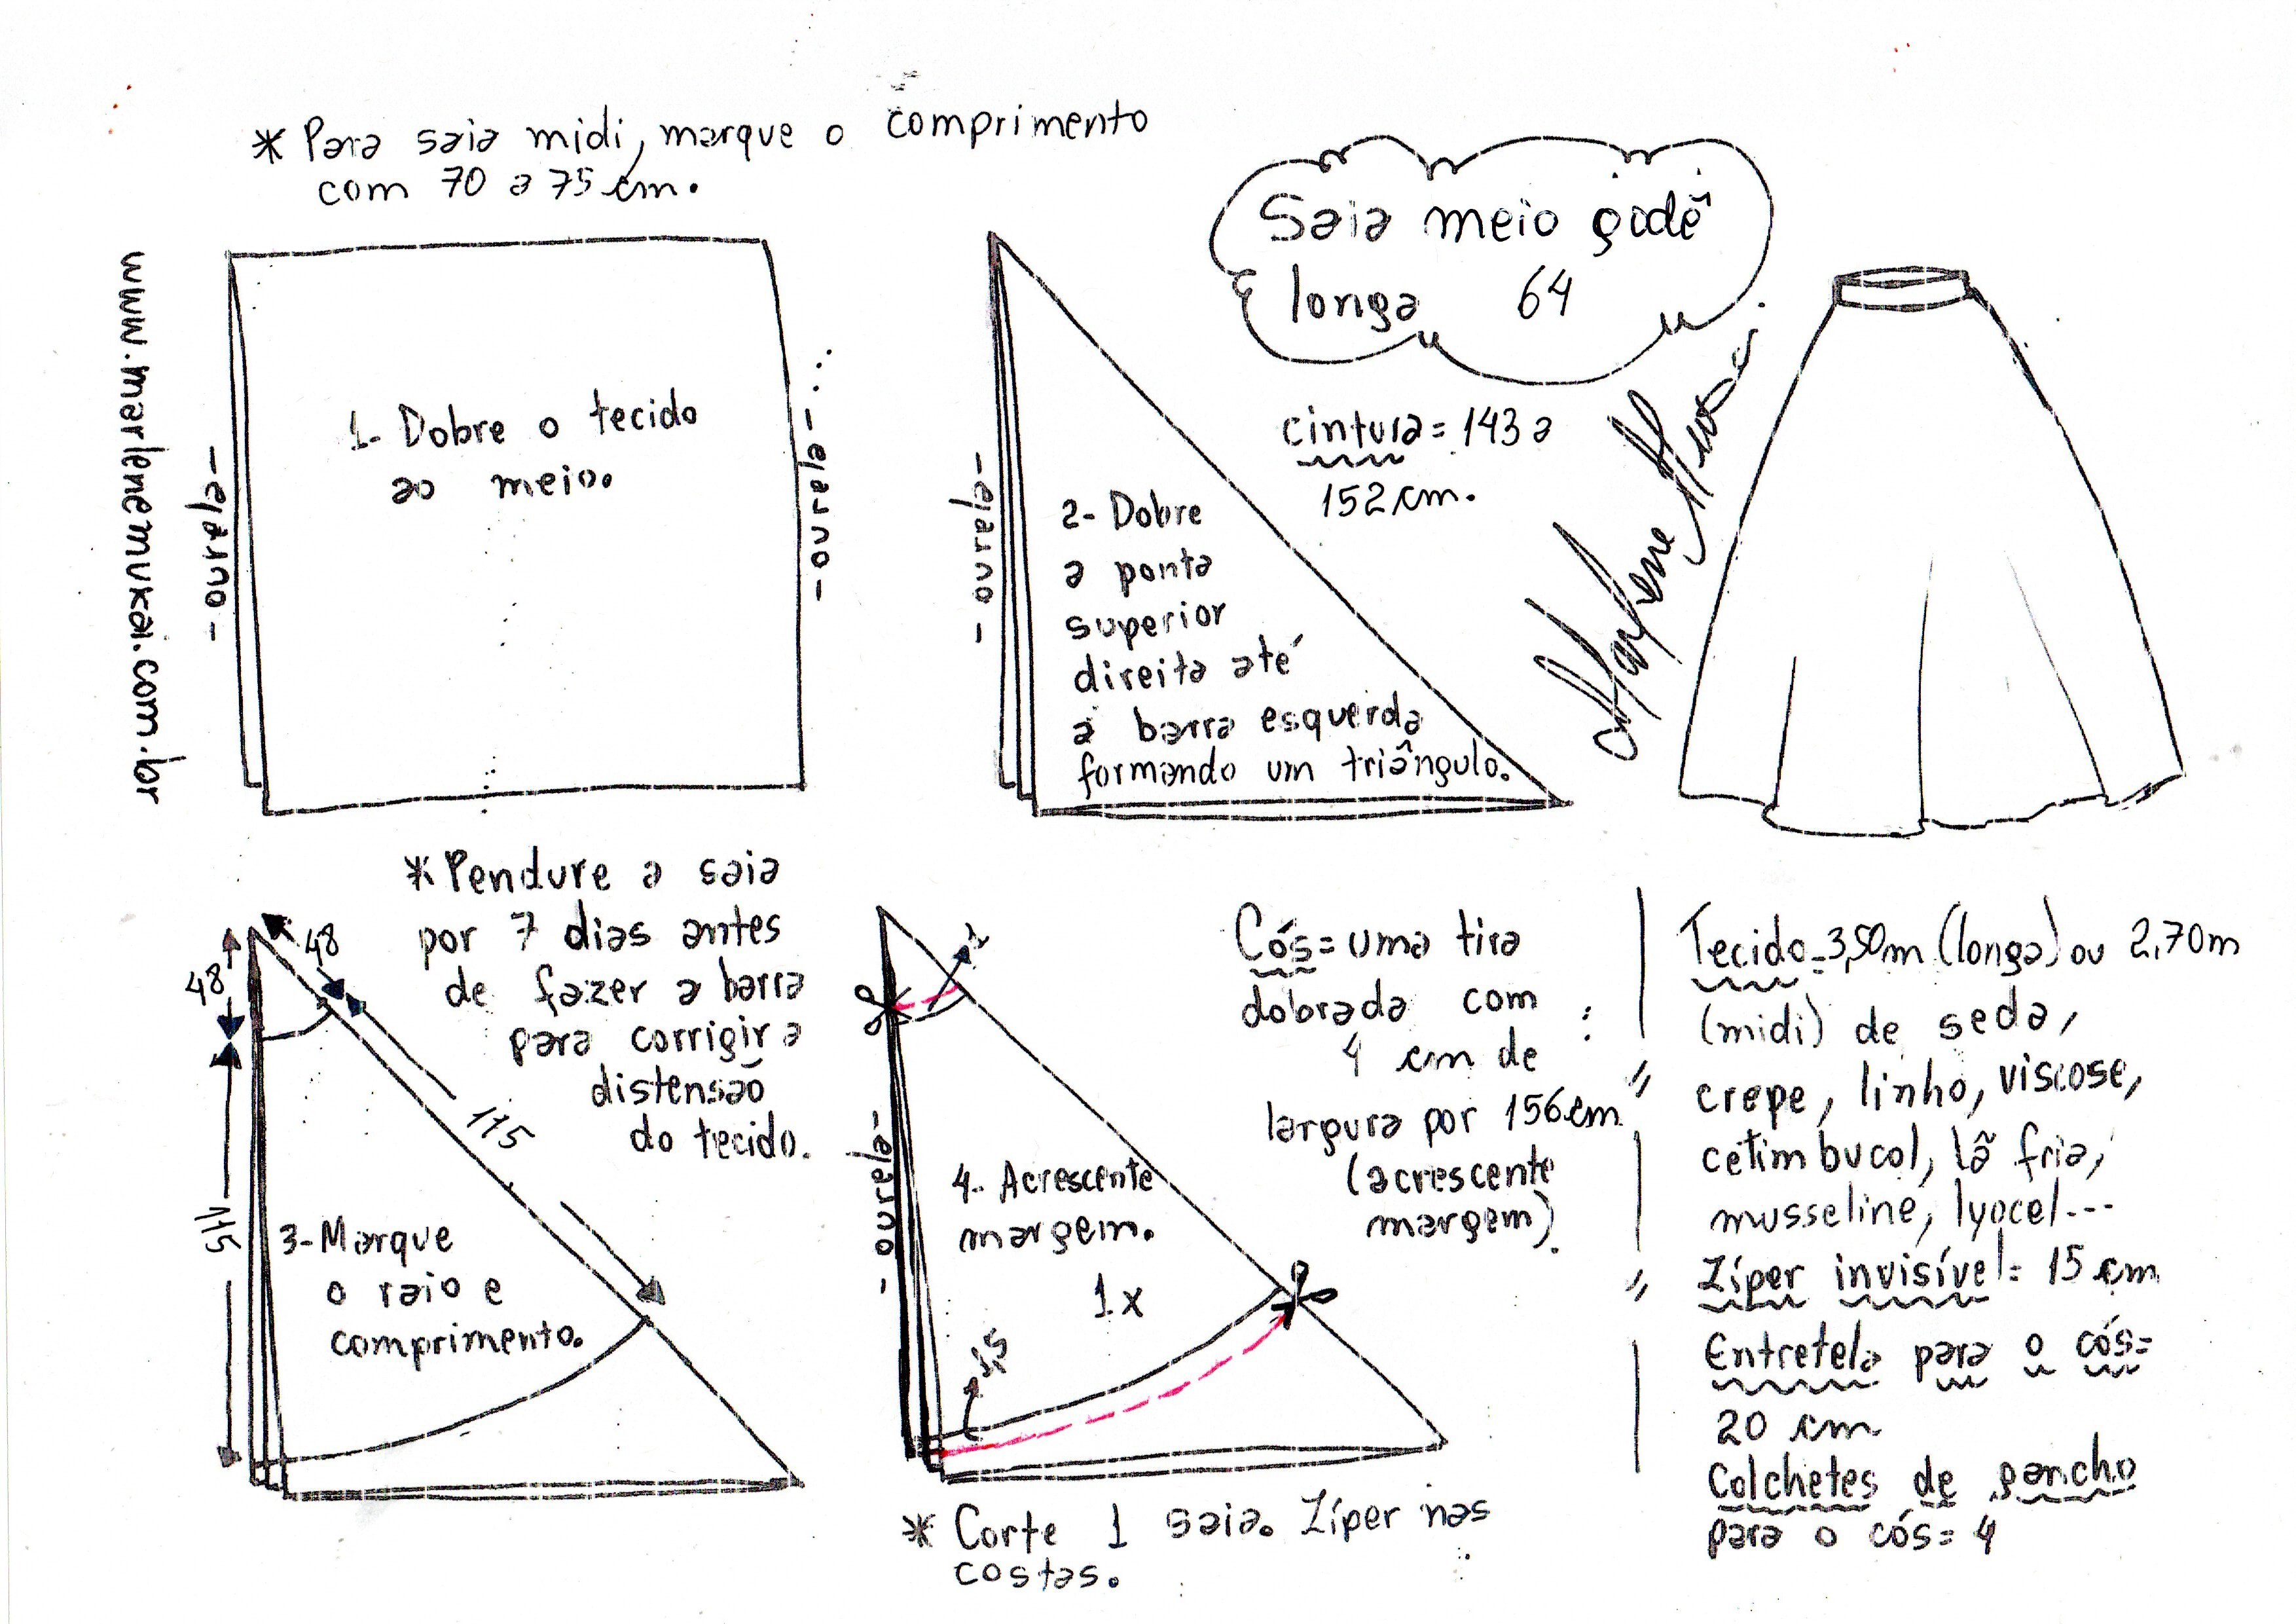 * Para saia midi, marque o comprimento
com 70 a 75 cm.
www.marlenemukai.com.br
- ourela -
1- Dobre o tecido
ao meio.
- ourela -
- ourela -
2- Dobre
a ponta
superior
direita até
a barra esquerda
formando um triângulo.
Saia meio godê
longa 64
cintura = 143 a
152 cm.
Marlene Mukai
* Pendure a saia
por 7 dias antes
de fazer a barra
para corrigir a
distensão
do tecido.
48
48
115
115
3- Marque
o raio e
comprimento.
1
- ourela -
4- Acrescente
margem.
1x
1,5
* Corte 1 saia. Zíper nas
costas.
Cós = uma tira
dobrada com
4 cm de
largura por 156 cm
(acrescente
margem).
Tecido = 3,50m (longa) ou 2,70m
(midi) de seda,
crepe, linho, viscose,
cetim bucol, lã fria,
musseline, lyocel ---
Zíper invisível = 15 cm
Entretela para o cós =
20 cm
Colchetes de gancho
para o cós = 4